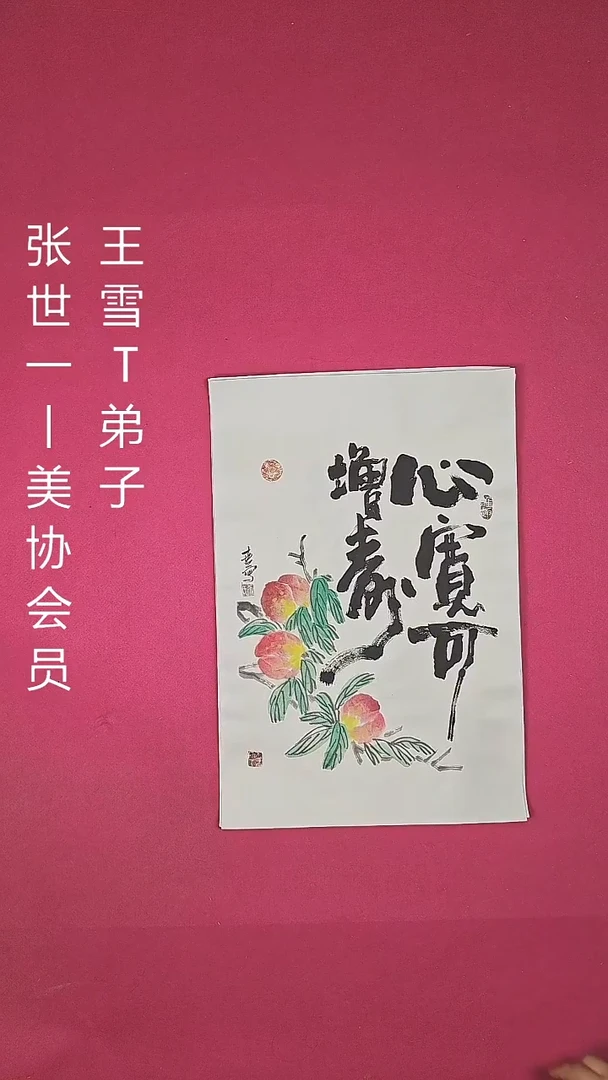 王雪T弟子
张世一丨美协会员
心寬可
增寿